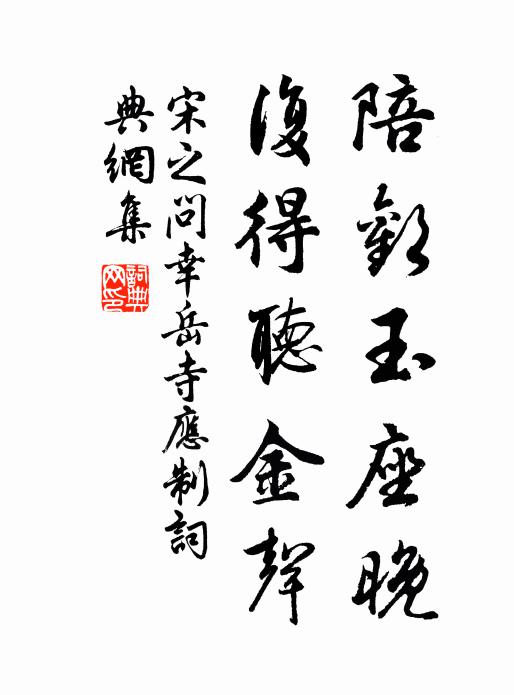 陪歡玉座晚
復得聽金聲
宋之問幸岳寺應制詞
典網集
詞典網印